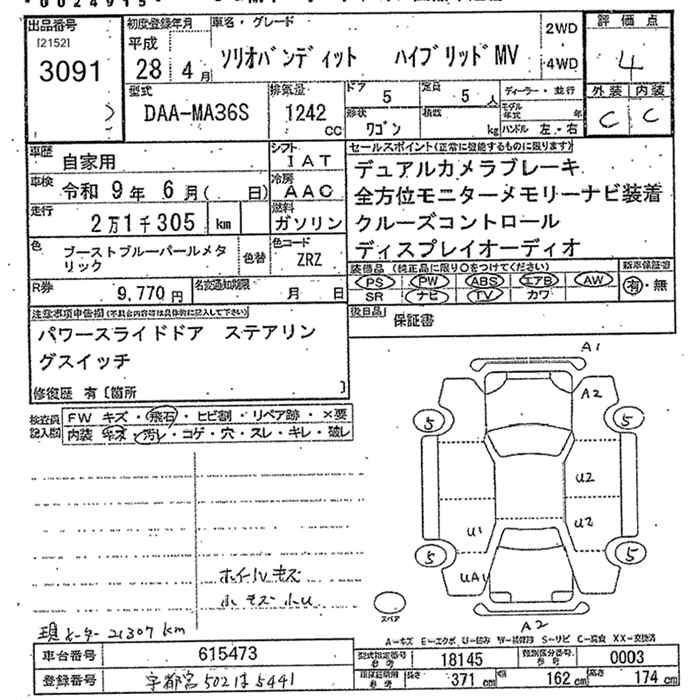 出品番号
[2152]
3091
初度登録年月
平成
28 4月
車名・グレード
ソリオバンディット ハイブリッドMV
2WD
4WD
評価点
4
型式
DAA-MA36S
排気量
1242
CC
ドア
5
定員
5 人
形状
ワゴン
積数
kg
ディーラー・並行
モデル年式 年
ハンドル 左・右
外装 内装
C C
車歴
自家用
シフト
IAT
車検
令和 9年 6月( 日)
冷房
AAC
走行
2万1千305 km
燃料
ガソリン
色
ブーストブルーパールメタリック
色替
色コード
ZRZ
R券
9,770円
名変通知期限
月 日
セールスポイント(正常に機能するものに限ります)
デュアルカメラブレーキ
全方位モニターメモリーナビ装着
クルーズコントロール
ディスプレイオーディオ
装備品 (純正品に限り○をつけてください)
PS PW ABS エアB AW
SR ナビ TV カワ
新車保証書
有・無
後日品
保証書
注意事項申告欄(不具合内容等は具体的に記入して下さい)
パワースライドドア ステアリン
グスイッチ
修復歴 有〔箇所 〕
検査員記入欄
FW キズ・飛石・ヒビ割・リペア跡・×要
内装 キズ・汚レ・コゲ・穴・スレ・キレ・破レ
A1
A2
5
5
U2
U1
U2
5
5
UA1
A2
ホイールキズ
小キズ小U
スペア
現メーター21307km
A=キズ E=エクボ U=凹み W=補修跡 S=サビ C=腐食 XX=交換済
車台番号
615473
型式指定番号
参考
18145
類別区分番号
参考
0003
登録番号
宇都宮502ほ5441
車検証記載
参考
長さ
371 cm
幅
162 cm
高さ
174 cm